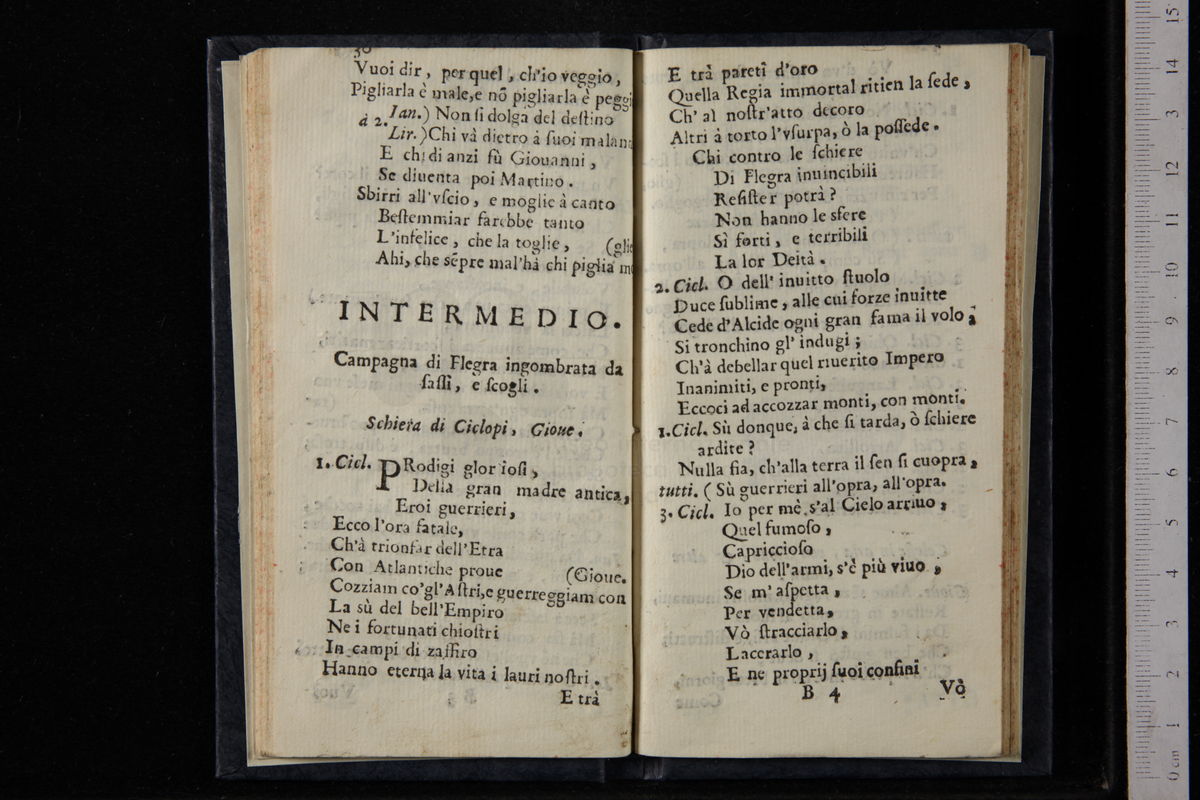 30
Vuoi dir, per quel, ch'io veggio,
Pigliarla è male,e nõ pigliarla è peggi
à 2. Ian.) Non ſi dolga del deſtino
Lir.) Chi và dietro à ſuoi malann
E chi di anzi fù Giouanni,
Se diuenta poi Martino.
Sbirri all'vſcio, e moglie à canto
Beſtemmiar farebbe tanto
L'infelice, che la toglie, (glie
Ahi, che sẽpre mal'hà chi piglia mo
INTERMEDIO.
Campagna di Flegra ingombrata da
ſaſſi, e ſcogli.
Schiera di Ciclopi, Gioue.
1. Cicl. PRodigi glorioſi,
Della gran madre antica,
Eroi guerrieri,
Ecco l'ora fatale,
Ch'à trionfar dell'Etra
Con Atlantiche proue (Gioue.
Cozziam co'gl'Aſtri,e guerreggiam con
La sù del bell'Empiro
Ne i fortunati chioſtri
In campi di zaffiro
Hanno eterna la vita i lauri noſtri.
E trà
E trà pareti d'oro
Quella Regia immortal ritien la ſede,
Ch' al noſtr'atto decoro
Altri à torto l'vſurpa, ò la poſſede.
Chi contro le ſchiere
Di Flegra inuincibili
Reſiſter potrà?
Non hanno le sfere
Sì forti, e terribili
La lor Deità.
2. Cicl. O dell' inuitto ſtuolo
Duce ſublime, alle cui forze inuitte
Cede d'Alcide ogni gran fama il volo;
Si tronchino gl' indugi;
Ch'à debellar quel riuerito Impero
Inanimiti, e pronti,
Eccoci ad accozzar monti, con monti.
1. Cicl. Sù donque, à che ſi tarda, ò ſchiere
ardite?
Nulla ſia, ch'alla terra il ſen ſi cuopra,
tutti. ( Sù guerrieri all'opra, all'opra.
3. Cicl. Io per mè s'al Cielo arriuo,
Quel fumoſo,
Capriccioſo
Dio dell'armi, s'è più viuo,
Se m' aſpetta,
Per vendetta,
Vò ſtracciarlo,
Lacerarlo,
E ne proprij ſuoi confini
B 4 Vò